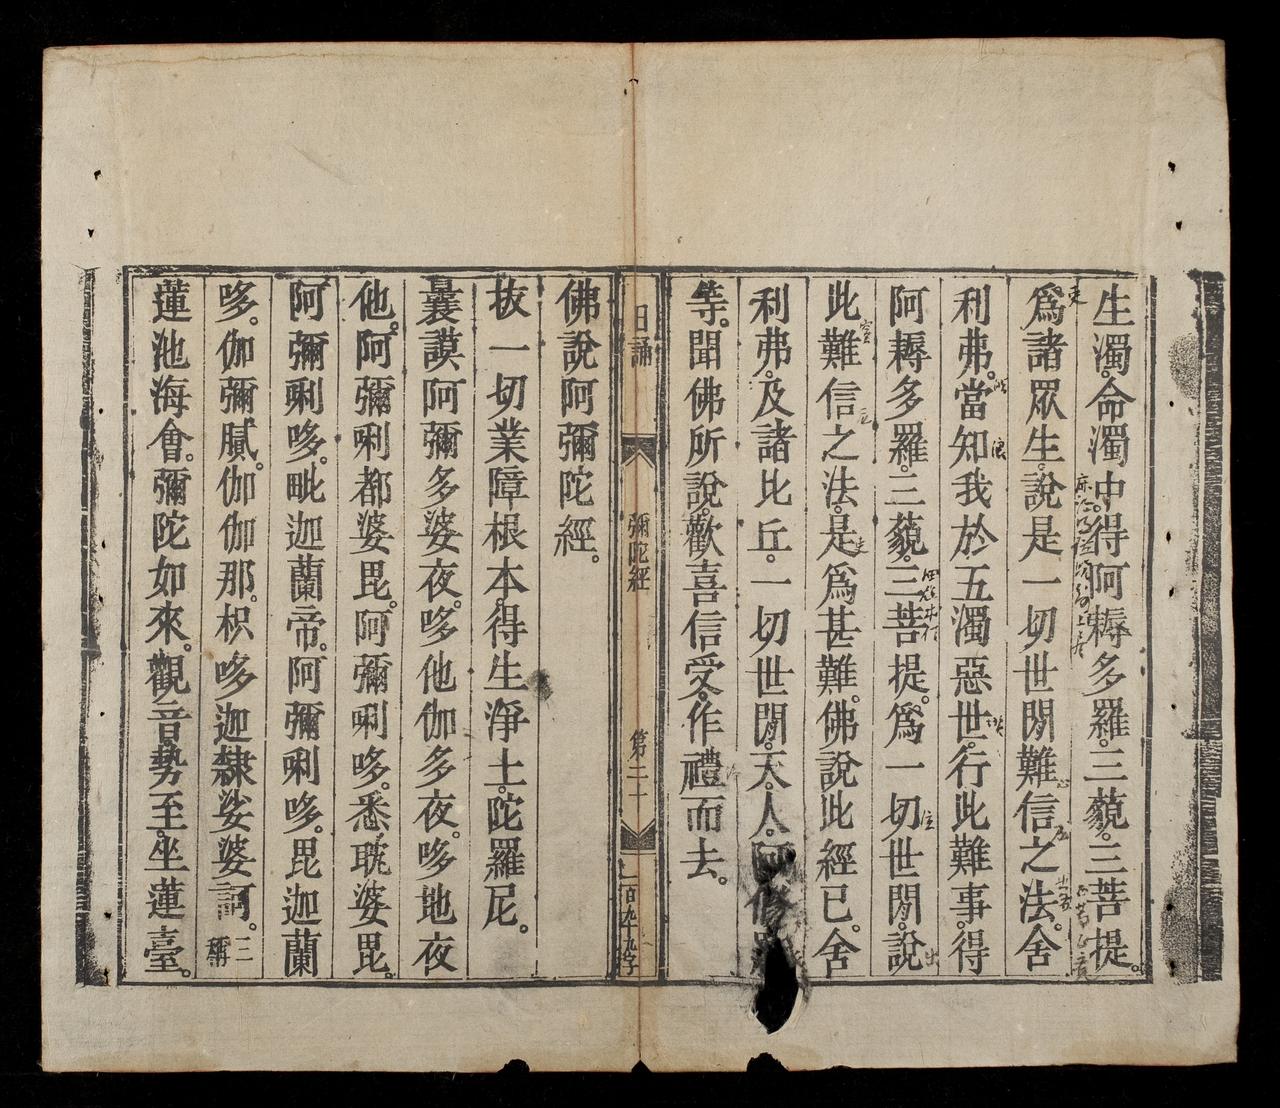 生濁。命濁中。得阿耨多羅。三藐。三菩提。
爲諸眾生。說是一切世閒難信之法。舍
利弗。當知我於五濁惡世。行此難事。得
阿耨多羅。三藐。三菩提。爲一切世閒。說
此難信之法。是爲甚難。佛說此經已。舍
利弗。及諸比丘。一切世閒。天。人。阿修
等。聞佛所說。歡喜信受。作禮而去。
日誦
彌陀經
第二十
一百九十九字
佛說阿彌陀經。
拔一切業障根本。得生淨土。陀羅尼。
曩謨阿彌多婆夜。哆他伽多夜。哆地夜
他。阿彌唎都婆毘。阿彌唎哆。悉耽婆毘。
阿彌唎哆。毗迦蘭帝。阿彌唎哆。毘迦蘭
哆。伽彌膩。伽伽那。枳哆迦隸娑婆訶。三稱
蓮池海會。彌陀如來。觀音勢至。坐蓮臺。